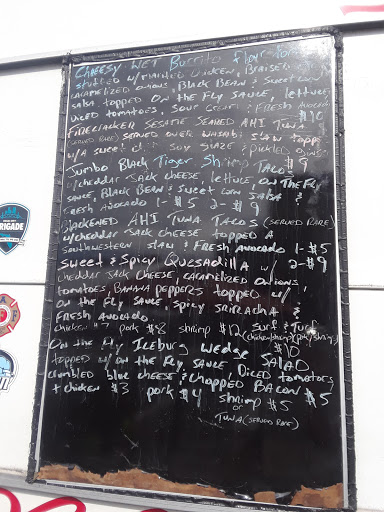 Cheesy WET Burrito flour
stuffed w/ marinated chicken,
caramelized onions, Black Bean & Sweet corn
salsa topped On the Fly SAUCE, lettuce,
diced tomatoes, sour cream & Fresh Avocado
$10
Firecracker SESAME SEARED AHI TUNA
(SERVED RARE) served over wasabi slaw topped
w/ a sweet chili soy glaze & pickled
$9
Jumbo Black Tiger Shrimp TACOS
w/ cheddar Jack cheese, lettuce, ON THE Fly
SAUCE, BLACK BEAN & Sweet corn SALSA &
Fresh Avocado 1-$5 2-$9
Blackened AHI TUNA TACOS (SERVED RARE)
w/ cheddar Jack cheese topped A
Southwestern slaw & Fresh Avocado 1-$5
2-$9
Sweet & Spicy Quesadilla w/
cheddar Jack cheese, caramelized onions,
tomatoes, BANANA peppers topped w/
on the Fly SAUCE, spicy sriracha &
Fresh Avocado
chicken $7 pork $8 shrimp $12 Surf & Turf
On the Fly Iceburg Wedge SALAD $10
topped w/ on the Fly SAUCE, Diced tomatoes,
crumbled blue cheese & chopped Bacon $5
+ chicken $3 pork $4 shrimp $5
or
TUNA (SERVED RARE)
BRIGADE